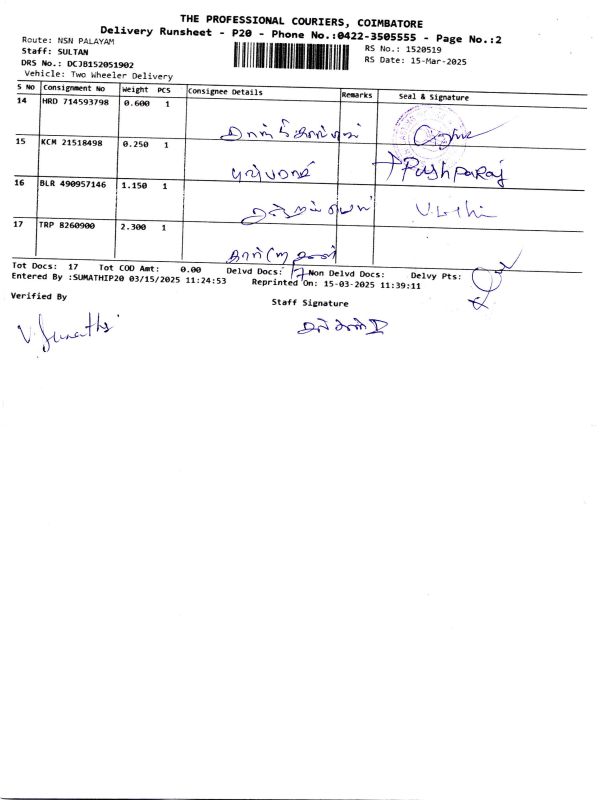 THE PROFESSIONAL COURIERS, COIMBATORE
Delivery Runsheet - P20 - Phone No.:0422-3505555 - Page No.:2
Route: NSN PALAYAM
RS No.: 1520519
Staff: SULTAN
RS Date: 15-Mar-2025
DRS No.: DCJB152051902
Vehicle: Two Wheeler Delivery
S No Consignment No Weight PCS Consignee Details Remarks Seal & Signature
14 HRD 714593798 0.600 1
15 KCM 21518498 0.250 1
Pushparaj
16 BLR 490957146 1.150 1
17 TRP 8260900 2.300 1
Tot Docs: 17 Tot COD Amt: 0.00 Delvd Docs: 17 Non Delvd Docs: Delvy Pts:
Entered By :SUMATHIP20 03/15/2025 11:24:53 Reprinted On: 15-03-2025 11:39:11
Verified By
Staff Signature
V. Sumathi